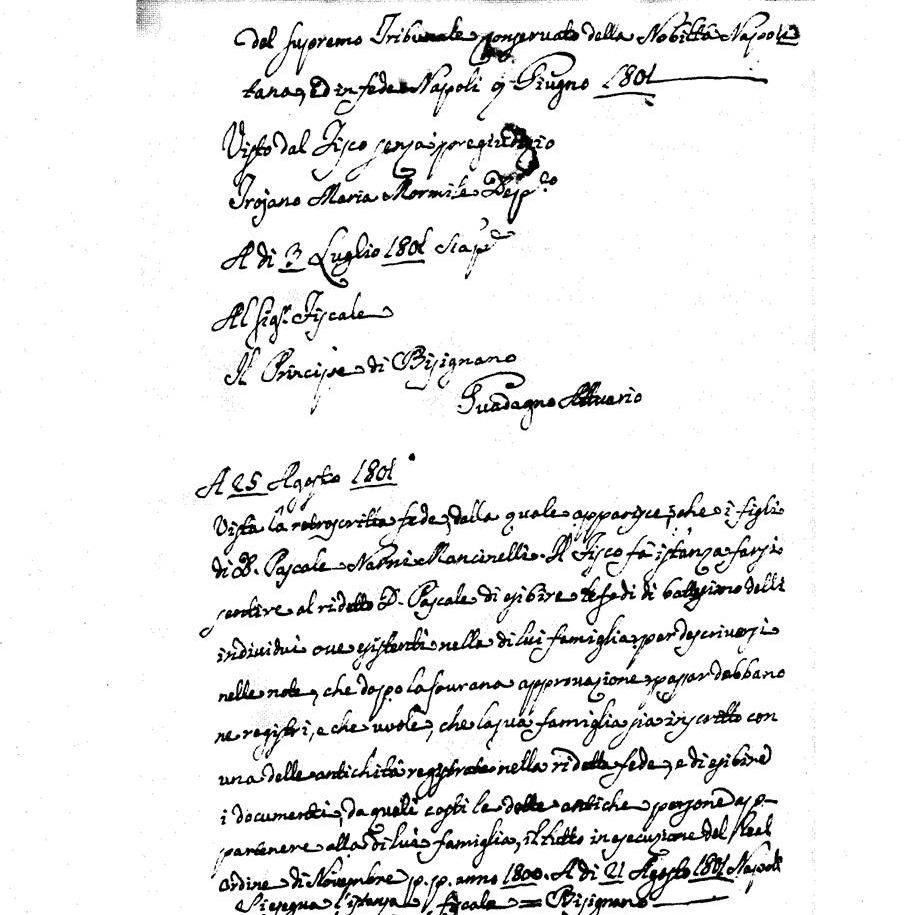 del supremo Tribunale conservato della Nobiltà Napole
tana, ed in fede Napoli 9 Giugno 1801
Visto dal Fisco senza pregiudizio
Trojano Maria Mormile
A di 3 Luglio 1801
Al sigr. Fiscale
Il Principe di Bisignano
Guadagno Attuario
A 25 Agosto 1801
Vista la retroscritta fede, dalla quale apparisce, che i figli
di D. Pascale Narni Mancinelli. Il Fisco fà istanza farsi
sentire al ridetto D. Pascale di esibire le fedi di battesimo delli
individui ove esistenti nella di lui famiglia, per descriversi
nelle note, che dopo la sovrana approvazione passar debbano
ne registri, e che vuole, che la sua famiglia sia inscritta con
una delle antichità registrate nella ridetta fede, e di esibire
i documenti, da quali costi le dette antiche persone ap-
partenere alla di lui famiglia, il tutto in esecuzione del Real
ordine di Novembre p.p. anno 1800. A di 21 Agosto 1801 Napoli
Si esegua l'istanza fiscale = Bisignano